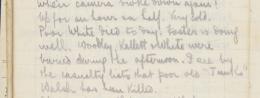 when camera smoke down again!
Up for an hour an half. Very cold.
Poor White died to day. Easter is doing
well. Woolley, Kellett & White were
buried during the afternoon. I see by
the casualty lists that poor old "Tunks"
Walsh has been killed.